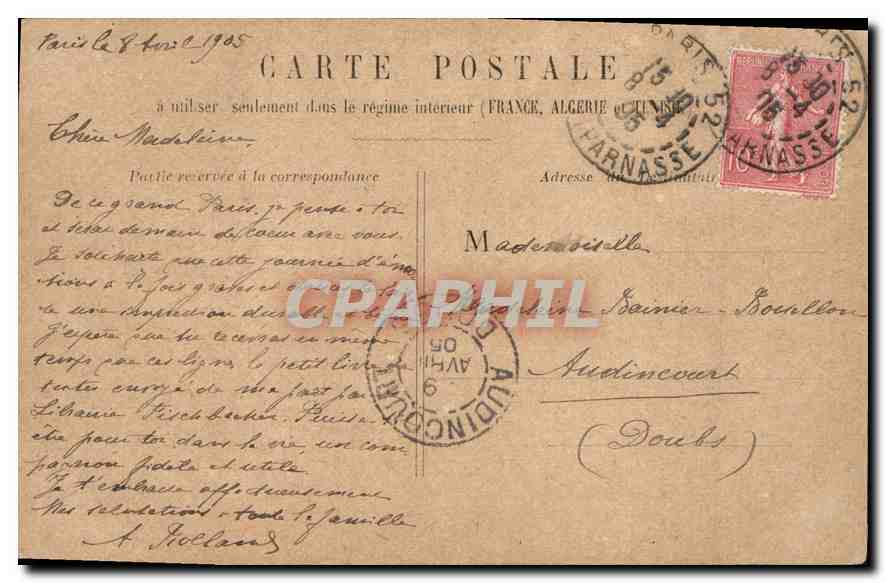 Paris le 8 Avril 1905
CARTE POSTALE
à utiliser seulement dans le régime intérieur (FRANCE, ALGERIE et TUNISIE)
Chère Madeleine,
Partie réservée à la correspondance
Adresse du
De ce grand Paris, je pense à toi
et serai demain de coeur avec vous.
Je souhaite que cette journée d'émo-
tions à la fois graves et
te une impression durable
J'espère que tu recevras en même
temps que ces lignes le petit livre
envoyé de ma part par
Librairie Fischbacher. Puisse
être pour toi dans la vie, un com
pagnon fidèle et utile
Je t'embrasse affectueusement
Mes salutations à toute la famille
A Rolland
Mademoiselle
Madeleine Bainier-Bouillon
Audincourt
(Doubs)
PARIS 52
15 30
8 4
05
PARNASSE
PARIS 52
15 30
8 4
05
PARNASSE
10
AUDINCOURT
9
AVRIL
05
DOUBS
CPAPHIL